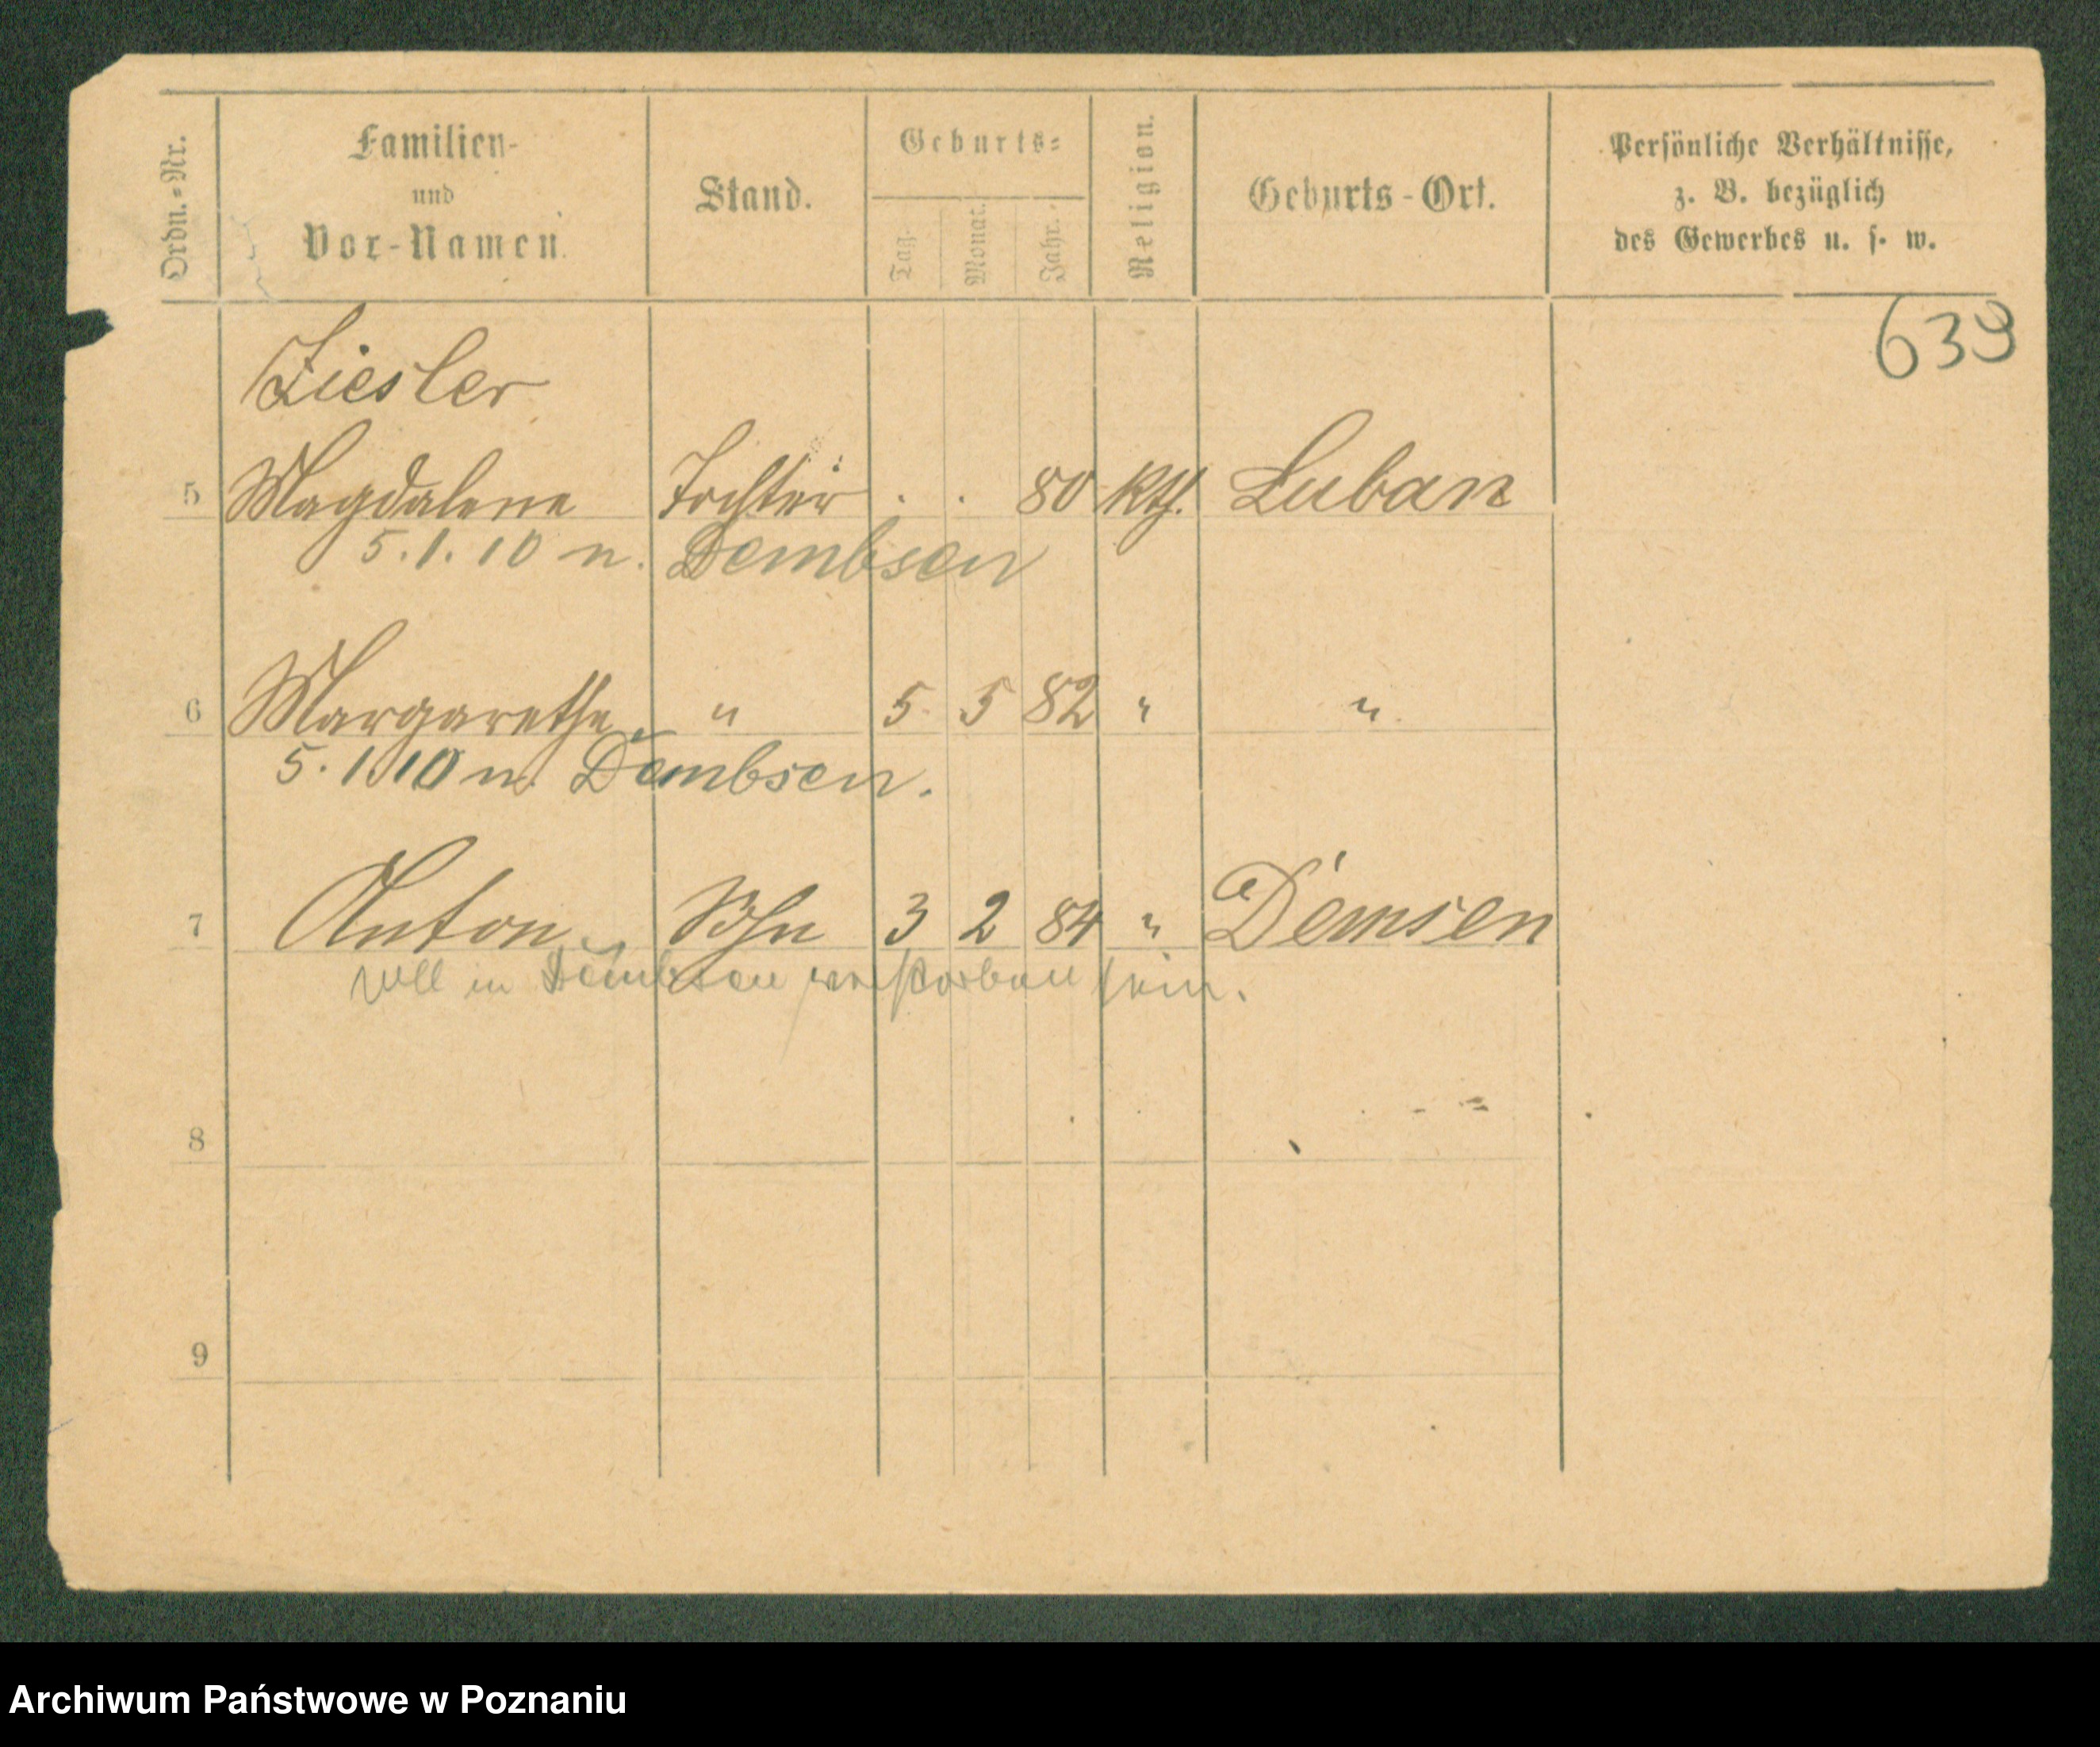 Ordn.-Nr.
Familien-
und
Vor-Namen.
Stand.
Geburts-
Tag.
Monat.
Jahr.
Religion.
Geburts-Ort.
Persönliche Verhältnisse,
z. B. bezüglich
des Gewerbes u. s. w.
639
Ziesler
5 Magdalene Tochter . . 80 Kth. Luban
5.1.10 n. Dembsen
6 Margarethe " 5 5 82 " "
5.1.10 n. Dembsen.
7 Anton Sohn 3 2 84 " Demsen
soll in Dembsen verstorben sein.
8
9
Archiwum Państwowe w Poznaniu